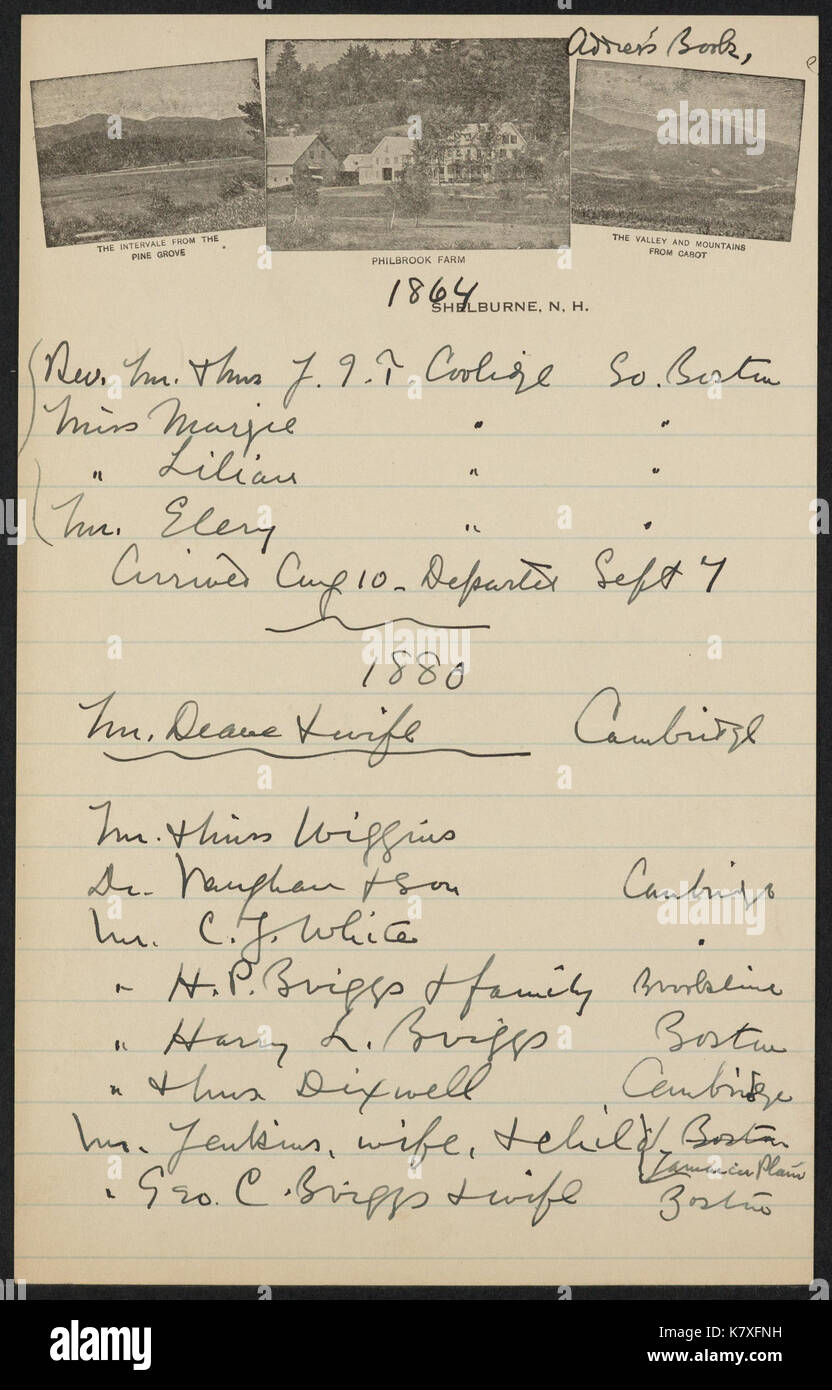 Address Book,
THE INTERVALE FROM THE
PINE GROVE
PHILBROOK FARM
THE VALLEY AND MOUNTAINS
FROM CABOT
1864
SHELBURNE, N. H.
Rev. Mr. & Mrs J. I. T. Coolidge So. Boston
Miss Margie " "
" Lilian " "
Mr. Elery " "
Arrived Aug 10 - Departed Sept 7
1880
Mr. Deane & wife Cambridge
Mr. & Miss Wiggins
Dr. Vaughan & Son Cambridge
Mr. C. J. White "
" H. P. Briggs & family Brookline
" Harry L. Briggs Boston
" & Mrs. Dixwell Cambridge
Mr. Jenkins, wife, & child Boston
Jamaica Plain
" Geo. C. Briggs & wife Boston
alamy
Image ID: K7XFNH
www.alamy.com